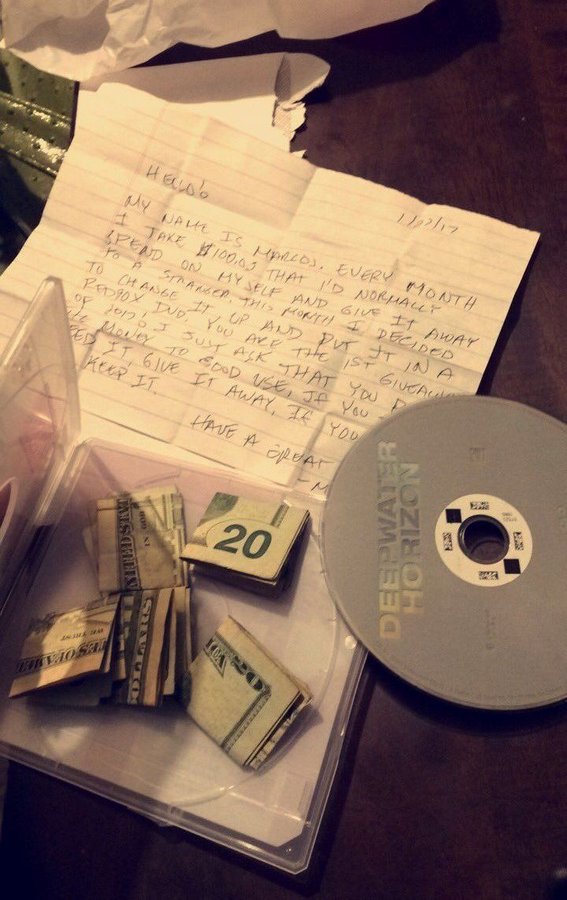 HELLO!
1/07/17
MY NAME IS MARCOS. EVERY MONTH
I TAKE $100.00 THAT I'D NORMALLY
SPEND ON MYSELF AND GIVE IT AWAY
TO A STRANGER. THIS MONTH I DECIDED
TO CHANGE IT UP AND PUT IT IN A
REDBOX DVD. YOU ARE THE 1ST GIVEAWAY
OF 2017! I JUST ASK THAT YOU
THE MONEY TO GOOD USE, IF YOU
IT, GIVE IT AWAY. IF YOU
KEEP IT.
HAVE A GREAT
-M
DEEPWATER
HORIZON
20
UNITED STA
IN GOD
WE TRUST
TES OF AME
DOLLARS
20